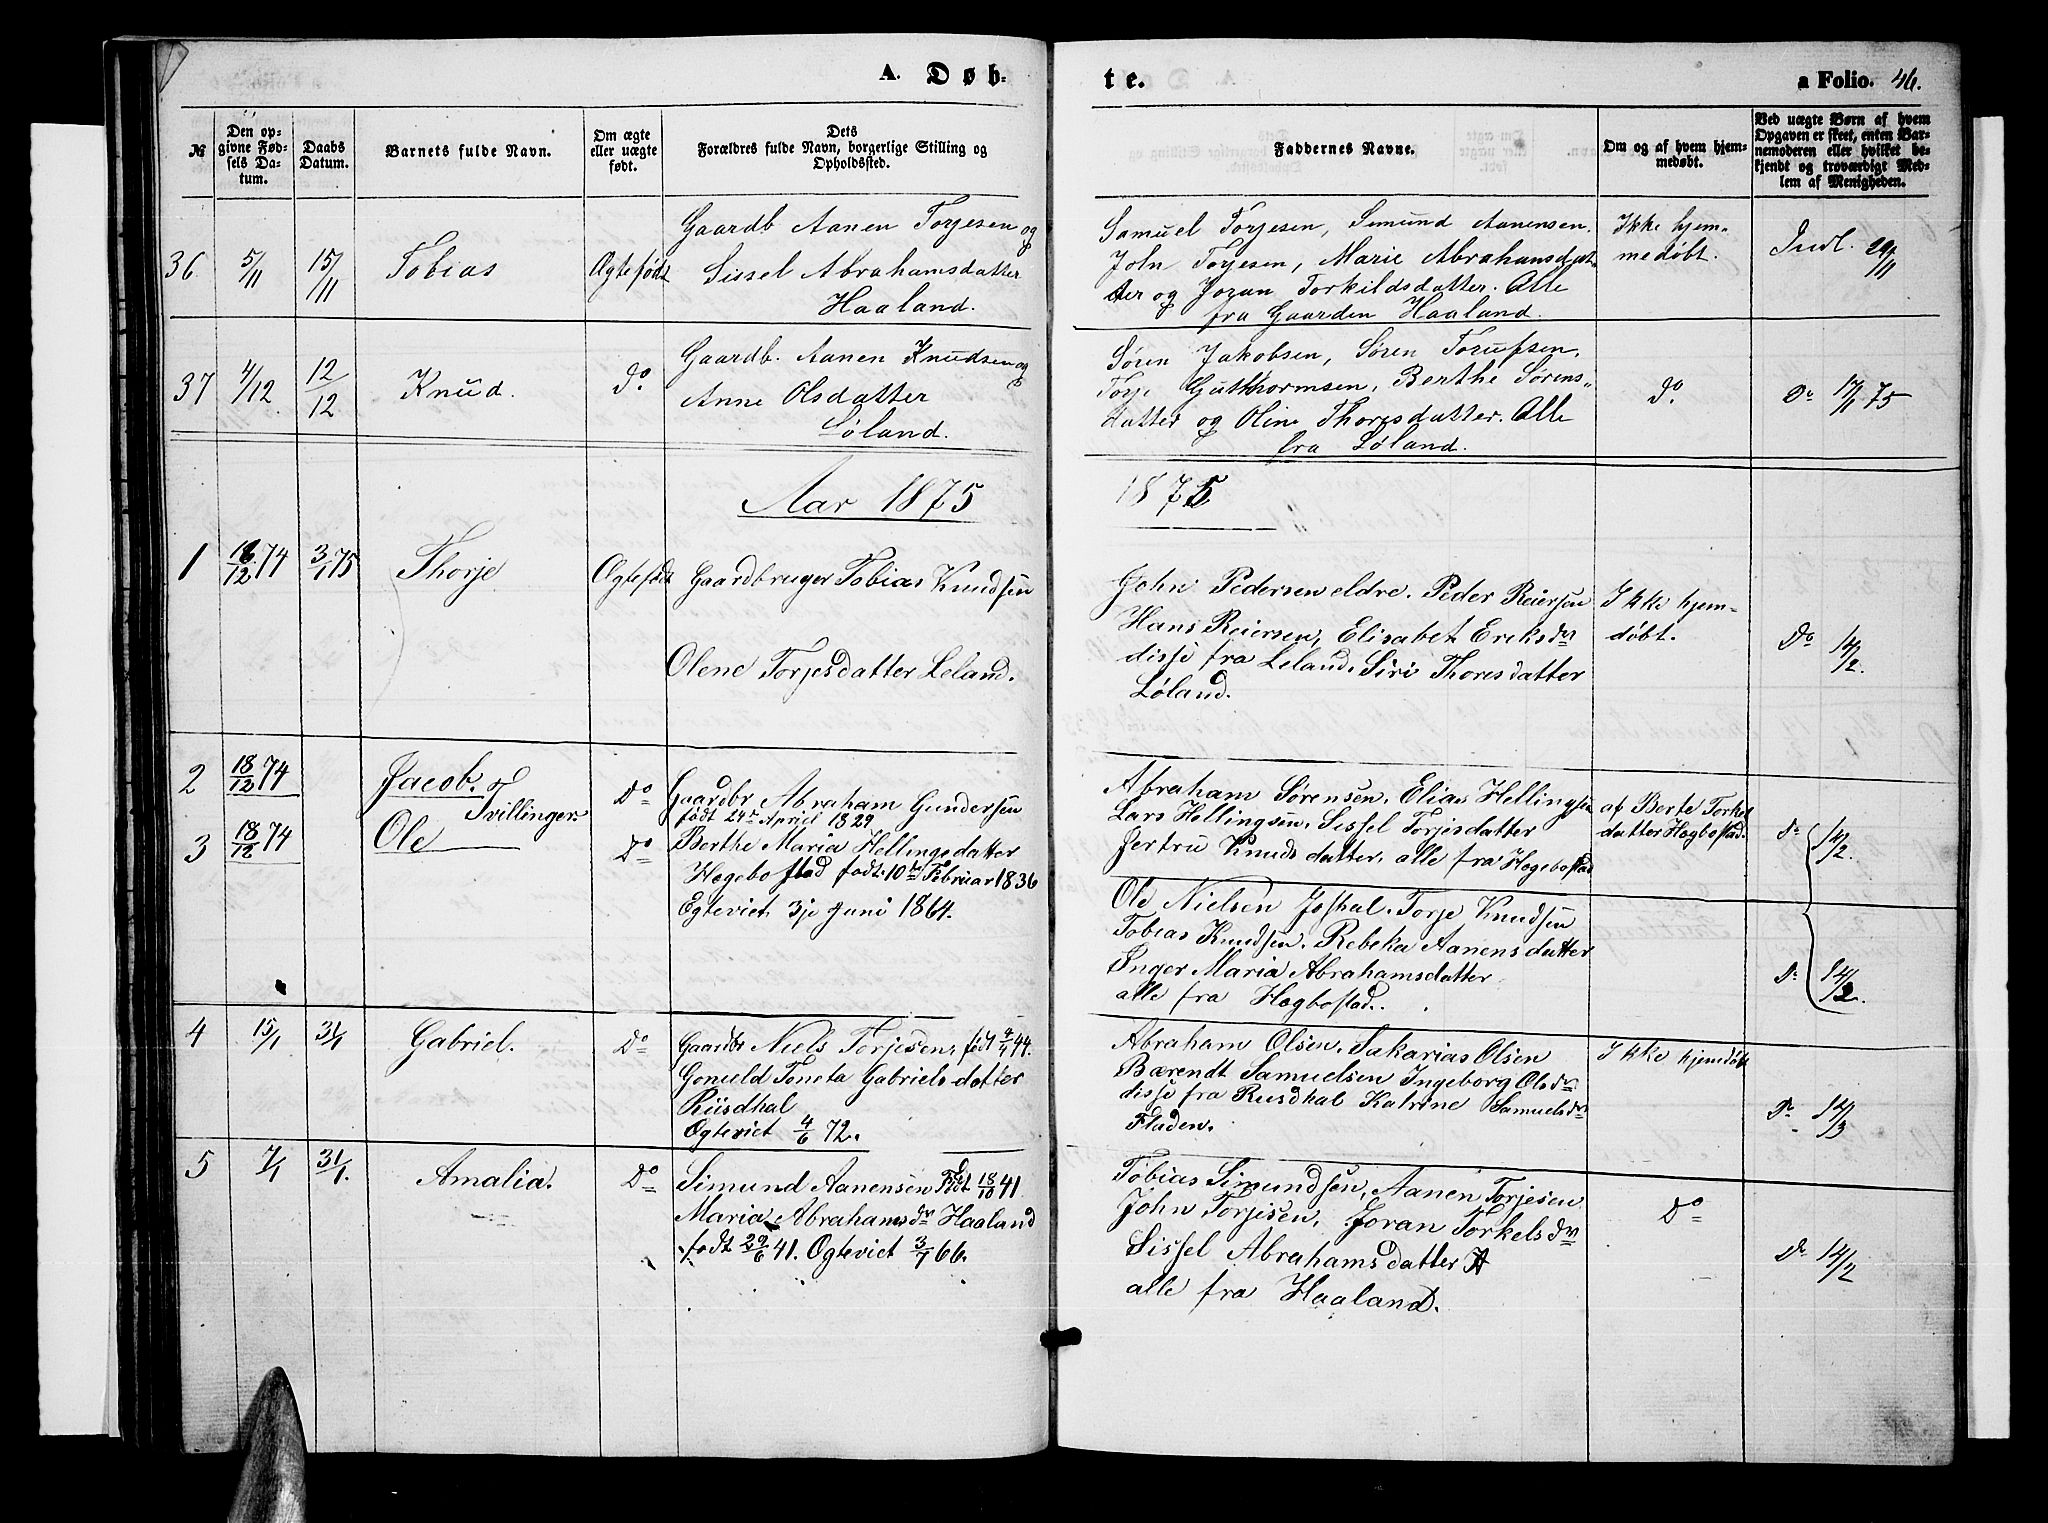 A. Døb-
№
Den op-
givne Fød-
sels Da-
tum.
Daabs
Datum.
Barnets fulde Navn.
Om ægte
eller uægte
født.
Dets
Forældres fulde Navn, borgerlige Stilling og
Opholdssted.
36
5/11
15/11
Tobias
Ægtefødt
Gaardb Aanen Torjesen og
Sissel Abrahamsdatter
Haaland.
37
4/12
12/12
Knud.
do.
Gaardb. Aanen Knudsen og
Anne Olsdatter
Løland.
Aar 1875
1
18/12 74
3/1 75
Thorje
Ægtefødt
Gaardbruger Tobias Knudsen
Olene Torjesdatter Leland.
2
18/12 74
Jacob.
Tvillinger.
Do
Gaardbr Abraham Gundersen
født 24de April 1829
3
18/12 74
Ole
Do
Berthe Maria Hellingsdatter
Hægebostad født 10de Februar 1836
Egteviet 3je Juni 1864.
4
15/1
31/1
Gabriel.
Do
Gaardbr Niels Torjesen, født 4/4 44.
Gonuld Toneta Gabrielsdatter
Rusdhal
Ægteviet 4/6 72.
5
7/1
31/1.
Amalia.
Do
Simund Aanensen Født 18/10 41
Maria Abrahamsdr Haaland
født 29/6 41. Ogteviet 3/7 66.
te.
a Folio. 46.
Faddernes Navne.
Om og af hvem hjem-
medøbt.
Ved uægte Børn af hvem
Opgaven er skeet, enten Bar-
nemoderen eller hvilket be-
kjendt og troværdigt Med-
lem af Menigheden.
Samuel Torjesen, Simund Aanensen.
John Torjesen, Marie Abrahamsdat-
ter og Joran Torkildsdatter. Alle
fra Gaarden Haaland.
Ikke hjem-
medøbt.
Indl. 29/11
Søren Jakobsen, Søren Torufsen,
Torje Guthormsen, Berthe Sørens-
datter og Oline Thoresdatter. Alle
fra Løland.
do.
Do 17/1 75
1875
John Pedersen eldre. Peder Reiersen
Hans Reiersen, Elisabet Eriksdr
disse fra Leland. Siri Thoresdatter
Løland.
Ikke hjem-
døbt.
Do 14/2.
Abraham Sørensen. Elias Hellingsen
Lars Hellingsen, Sissel Torjesdatter
Jertru Knudsdatter, alle fra Hægebostad
af Berte Torkels
datter Hægbostad.
Do 14/2.
Ole Nielsen Joshal. Torje Knudsen
Tobias Knudsen. Rebeka Aanensdatter
Inger Maria Abrahamsdatter
alle fra Hægbostad.
Do 14/2.
Abraham Olsen. Sakarias Olsen
Bærendt Samuelsen Ingeborg Olsdr
disse fra Rusdhal Katrine Samuelsdr
Fladen.
Ikke hjemdøbt
Do 12/3
Tobias Simundsen, Aanen Torjesen
John Torjesen, Joran Torkelsdr
Sissel Abrahamsdatter
alle fra Haaland.
Do
Do 14/2